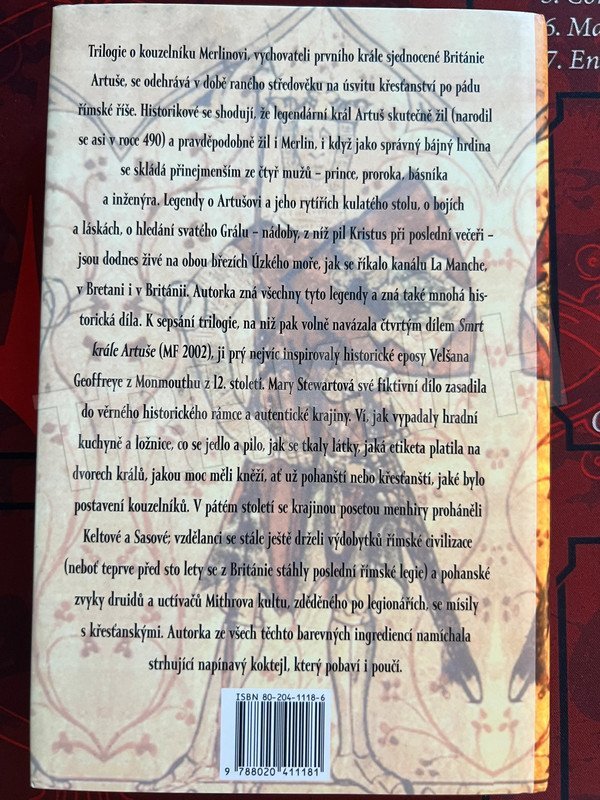 Trilogie o kouzelníku Merlinovi, vychovateli prvního krále sjednocené Británie
Artuše, se odehrává v době raného středověku na úsvitu křesťanství po pádu
římské říše. Historikové se shodují, že legendární král Artuš skutečně žil (narodil
se asi v roce 490) a pravděpodobně žil i Merlin, i když jako správný bájný hrdina
se skládá přinejmenším ze čtyř mužů – prince, proroka, básníka
a inženýra. Legendy o Artušovi a jeho rytířích kulatého stolu, o bojích
a láskách, o hledání svatého Grálu – nádoby, z níž pil Kristus při poslední večeři –
jsou dodnes živé na obou březích Úzkého moře, jak se říkalo kanálu La Manche,
v Bretani i v Británii. Autorka zná všechny tyto legendy a zná také mnohá his-
torická díla. K sepsání trilogie, na niž pak volně navázala čtvrtým dílem Smrt
krále Artuše (MF 2002), ji prý nejvíc inspirovaly historické eposy Velšana
Geoffreye z Monmouthu z 12. století. Mary Stewartová své fiktivní dílo zasadila
do věrného historického rámce a autentické krajiny. Ví, jak vypadaly hradní
kuchyně a ložnice, co se jedlo a pilo, jak se tkaly látky, jaká etiketa platila na
dvorech králů, jakou moc měli kněží, ať už pohanští nebo křesťanští, jaké bylo
postavení kouzelníků. V pátém století se krajinou posetou menhiry proháněli
Keltové a Sasové; vzdělanci se stále ještě drželi výdobytků římské civilizace
(neboť teprve před sto lety se z Británie stáhly poslední římské legie) a pohanské
zvyky druidů a uctívačů Mithrova kultu, zděděného po legionářích, se mísily
s křesťanskými. Autorka ze všech těchto barevných ingrediencí namíchala
strhující napínavý koktejl, který pobaví i poučí.
ISBN 80-204-1118-6
9 788020 411181
6. Ma
7. En